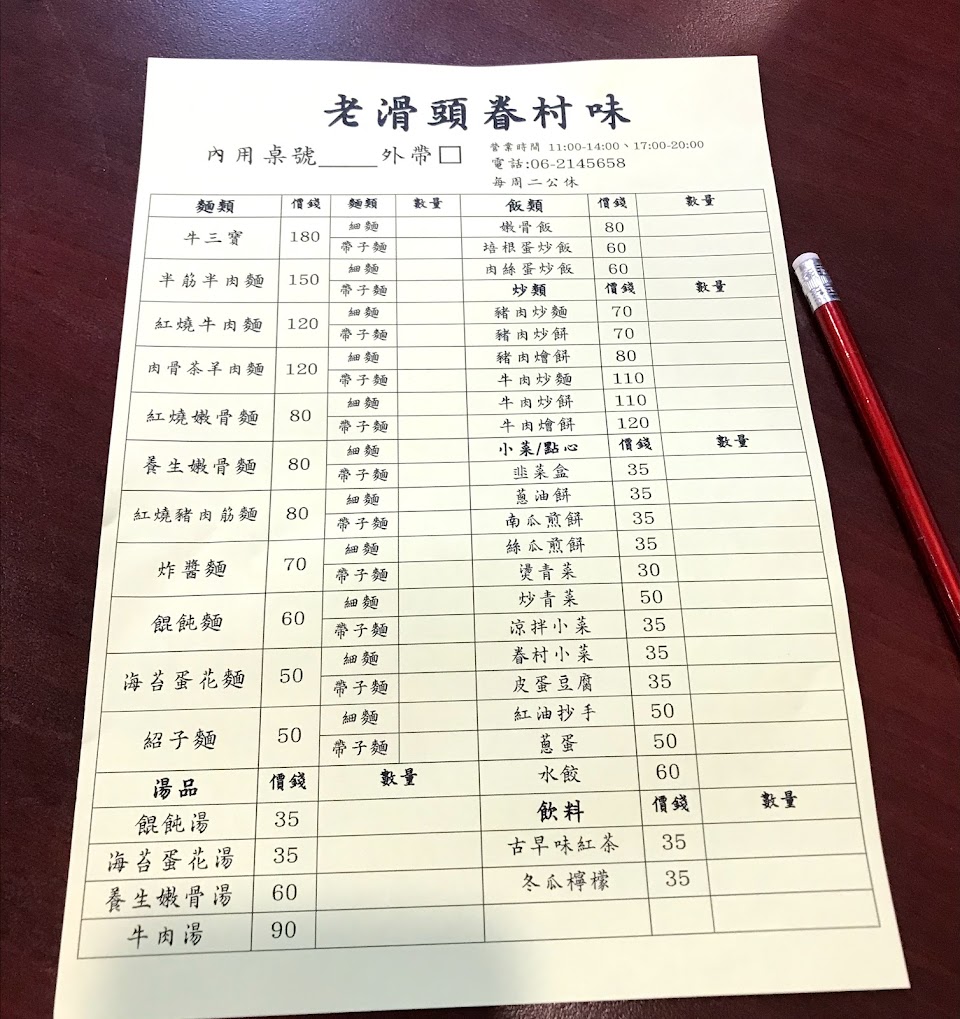 老滑頭眷村味
內用桌號____外帶□
營業時間 11:00-14:00、17:00-20:00
電話:06-2145658
每周二公休
麵類 價錢 麵類 數量
牛三寶 180 細麵
帶子麵
半筋半肉麵 150 細麵
帶子麵
紅燒牛肉麵 120 細麵
帶子麵
肉骨茶羊肉麵 120 細麵
帶子麵
紅燒嫩骨麵 80 細麵
帶子麵
養生嫩骨麵 80 細麵
帶子麵
紅燒豬肉筋麵 80 細麵
帶子麵
炸醬麵 70 細麵
帶子麵
餛飩麵 60 細麵
帶子麵
海苔蛋花麵 50 細麵
帶子麵
紹子麵 50 細麵
帶子麵
湯品 價錢 數量
餛飩湯 35
海苔蛋花湯 35
養生嫩骨湯 60
牛肉湯 90
飯類 價錢 數量
嫩骨飯 80
培根蛋炒飯 60
肉絲蛋炒飯 60
炒類 價錢 數量
豬肉炒麵 70
豬肉炒餅 70
豬肉燴餅 80
牛肉炒麵 110
牛肉炒餅 110
牛肉燴餅 120
小菜/點心 價錢 數量
韭菜盒 35
蔥油餅 35
南瓜煎餅 35
絲瓜煎餅 35
燙青菜 30
炒青菜 50
涼拌小菜 35
眷村小菜 35
皮蛋豆腐 35
紅油抄手 50
蔥蛋 50
水餃 60
飲料 價錢 數量
古早味紅茶 35
冬瓜檸檬 35